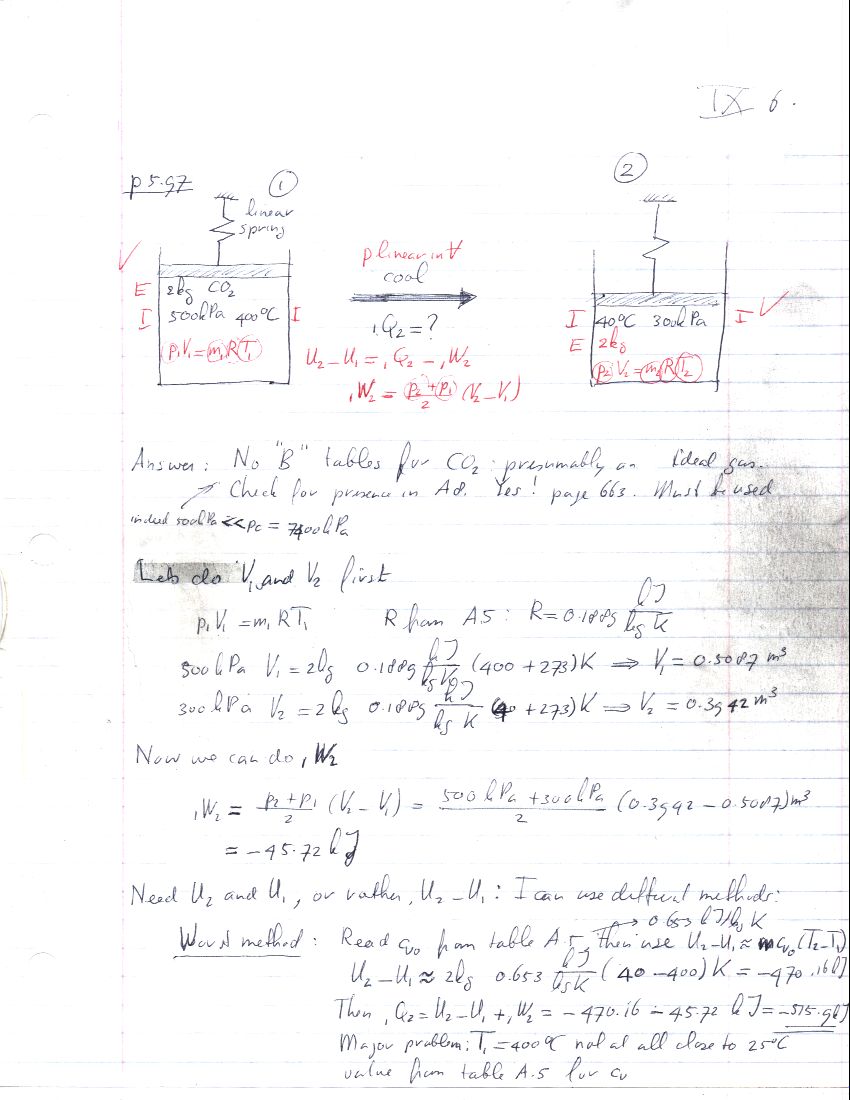 IX 6.
p 5.97
① ②
linear
spring
p linear in V
cool
E 2kg CO2
I 500kPa 400°C I
I 40°C 300kPa I
1Q2 = ?
E 2kg
p1V1 = m1R T1
U2 - U1 = 1Q2 - 1W2
p2 V2 = m2 R T2
1W2 = (p2 + p1)/2 (V2 - V1)
Answer: No "B" tables for CO2: presumably an ideal gas.
Check for presence in A8. Yes! page 663. Must be used
indeed 500kPa << pc = 7400kPa
Lets do V1 and V2 first
p1V1 = m1 RT1 R from A5: R = 0.1889 kJ/kg K
500kPa V1 = 2kg 0.1889 kJ/kg K (400 + 273)K ⇒ V1 = 0.5087 m³
300kPa V2 = 2kg 0.1889 kJ/kg K (40 + 273)K ⇒ V2 = 0.3942 m³
Now we can do 1W2
1W2 = (p2 + p1)/2 (V2 - V1) = (500kPa + 300kPa)/2 (0.3942 - 0.5087) m³
= -45.72 kJ
Need U2 and U1, or rather, U2 - U1: I can use different methods:
→ 0.653 kJ/kg K
Worst method: Read cvo from table A.5, Then use U2-U1 ≈ m cvo (T2-T1)
U2 - U1 ≈ 2kg 0.653 kJ/kg K (40 - 400) K = -470.16 kJ
Then 1Q2 = U2 - U1 + 1W2 = -470.16 - 45.72 kJ = -515.9 kJ
Major problem: T1 = 400°C not at all close to 25°C
value from table A.5 for cv